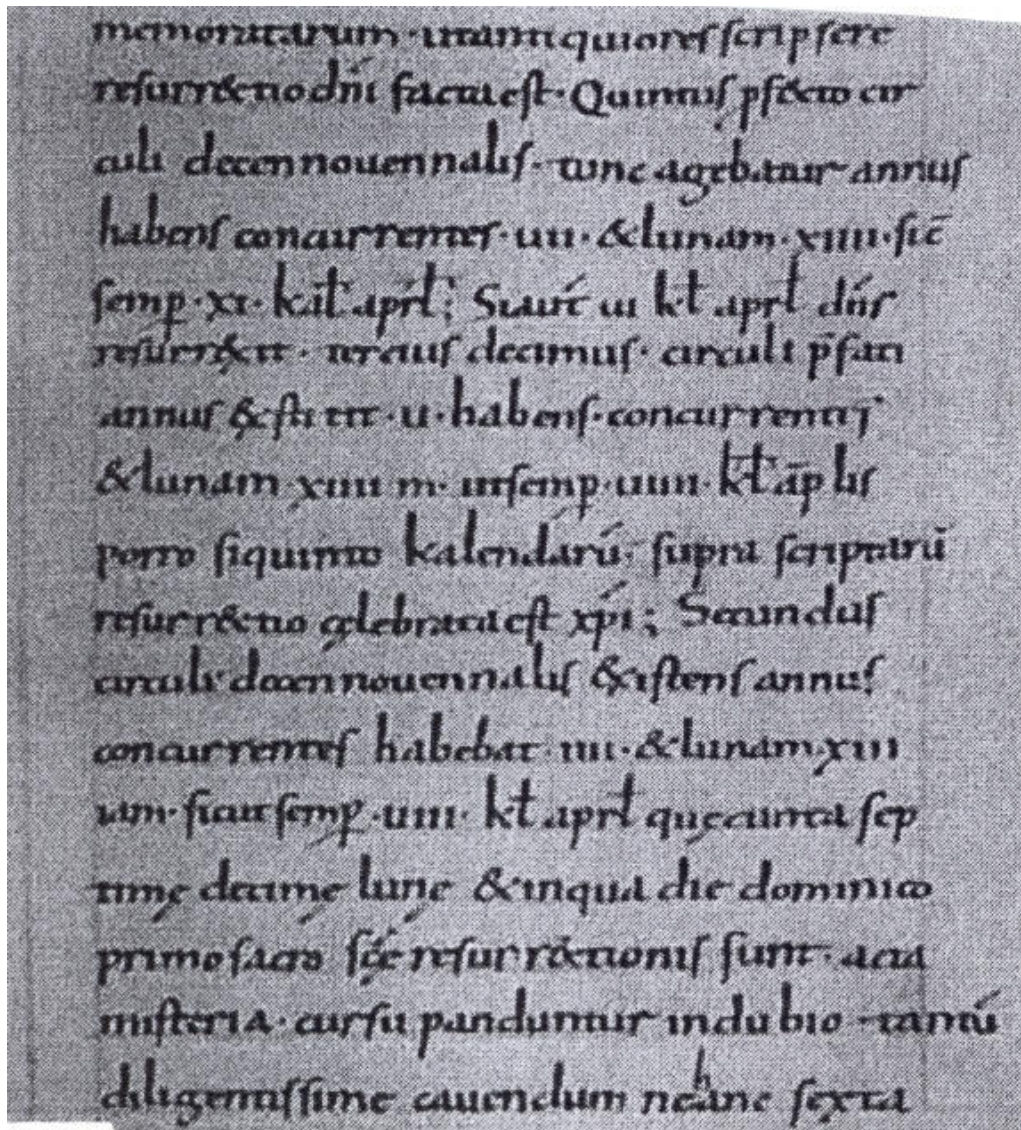 memoratarum · utantiquiores scripsere
resurrectio dn̄i facta est · Quintus p̱fecto cir
culi decennouennalis · tunc agebatur annus
habens concurrentes · uii · &lunam · xiiii · sic̄
semp̱ · xi · kał aprł; Si aut̄ ui kł aprł dn̄s
resurrexit · tertius decimus · circuli p̄fati
annus u · habens · concurrentes
&lunam · xiiii · semp̱ · uiiii · kł ap̄lis
porro si quinto kalendarū · supra scriptarū
resurr&tio celebrata est xp̄i; Secundus
circuli decennouennalis &istens annus
concurrentes habebat · iiii · &lunam · xiiii
am · sicut semp̱ · uiii · kł aprł quę cuncta sep
timę decimę lunę &inqua die dominico
primo sacro sc̄ę resurrectionis sunt · acta
misteria · cursu panduntur indubio · tantū
diligentissime cauendum ne hanc sexta